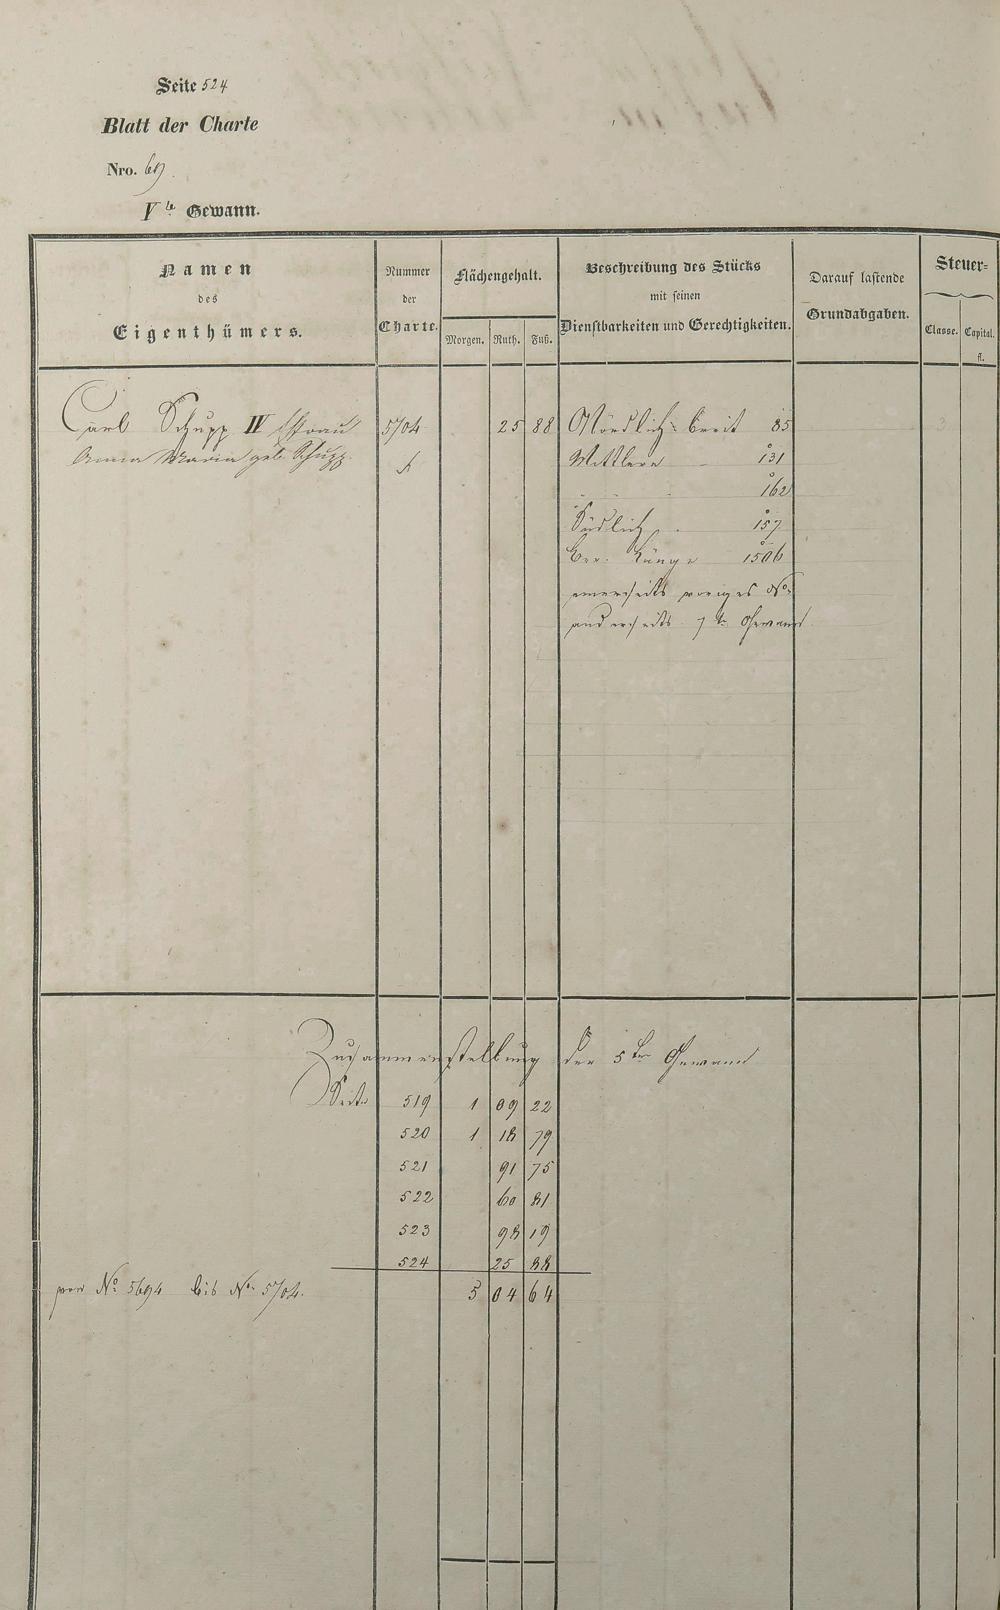 Seite 524
Blatt der Charte
Nro. 69.
V te Gewann.
Namen
des
Eigenthümers.
Nummer
der
Charte.
Flächengehalt.
Morgen. Ruth. Fuß.
Beschreibung des Stücks
mit seinen
Dienstbarkeiten und Gerechtigkeiten.
Darauf lastende
Grundabgaben.
Steuer-
Classe. Capital.
fl.
Carl Schupp IV Ehefrau 5704 25 88 Nördlich breit 85
Anna Maria geb. Schupp. Mittlere 131
162
Südlich 157
Ber. Länge 1506
einerseits voriges No
anderseits 7te Gewann
Zusammenstellung der 5ten Gewann
Seite 519 1 09 22
520 1 18 79
521 91 75
522 60 81
523 98 19
524 25 88
von No 5694 bis No 5704. 5 04 64